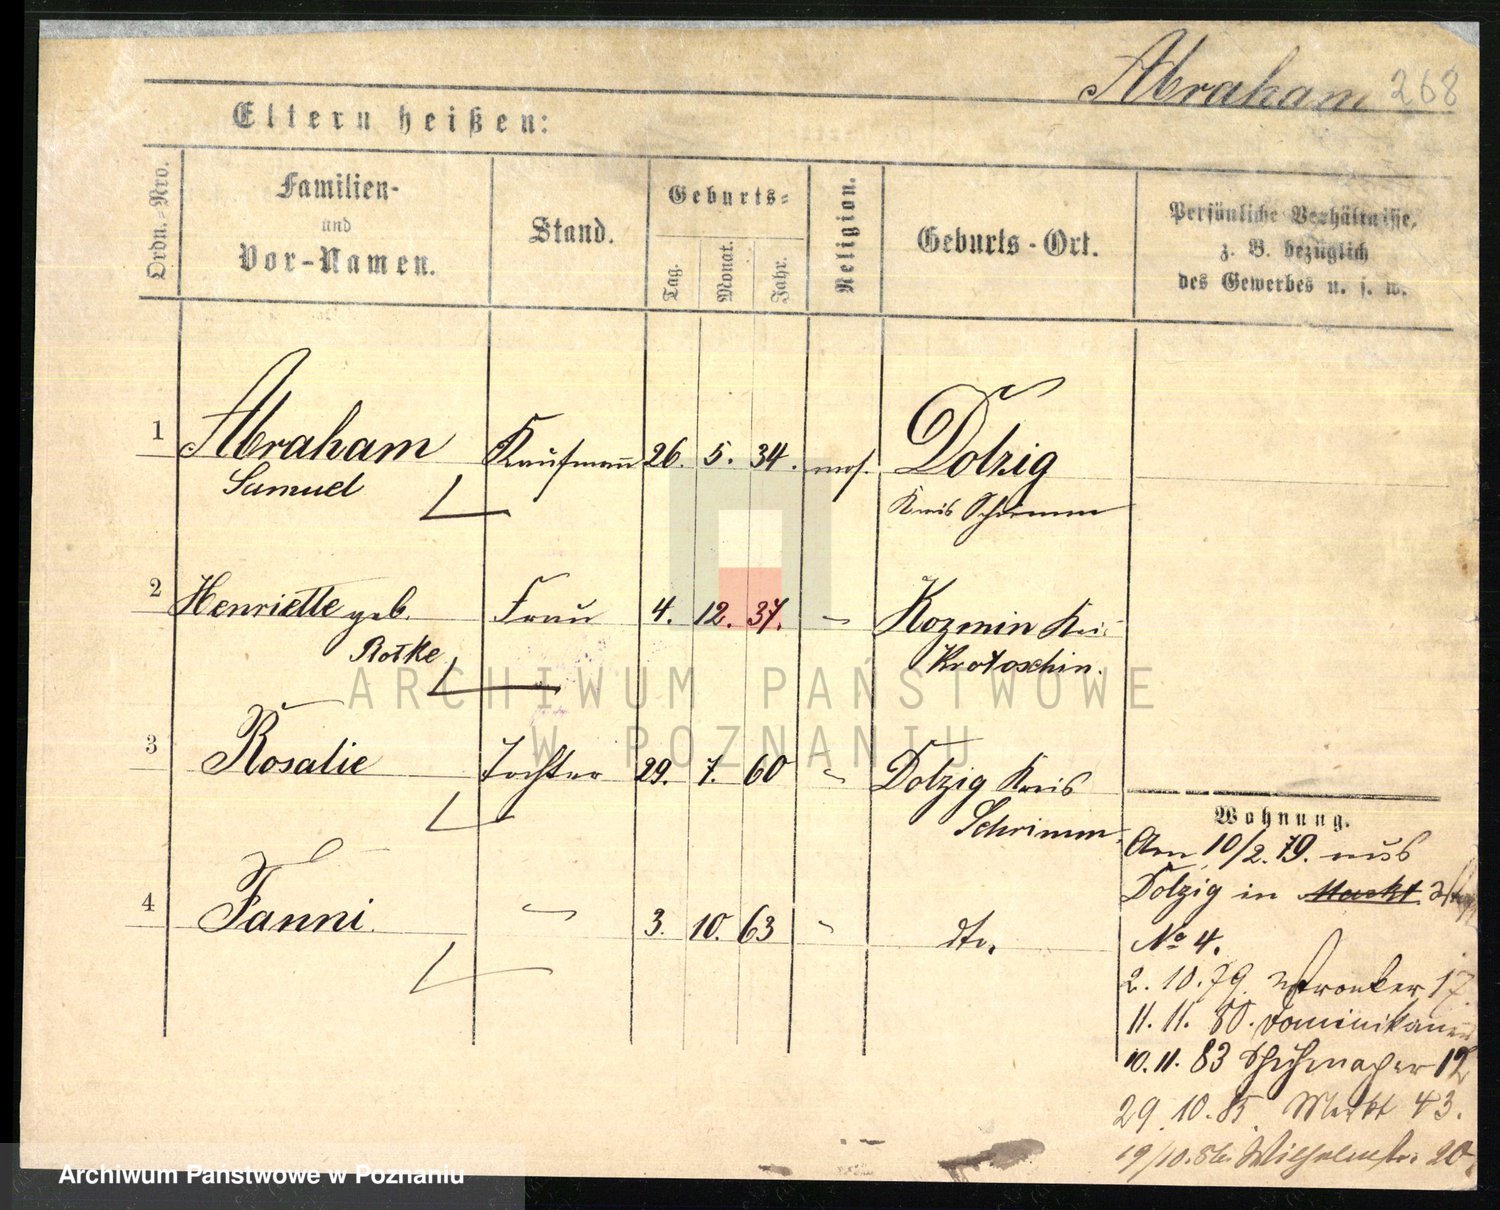 Abraham 268
Eltern heißen:
Ordn.-Nro.
Familien-
und
Vor-Namen.
Stand.
Geburts-
Tag.
Monat.
Jahr.
Religion.
Geburts-Ort.
Persönliche Verhältnisse,
z. B. bezüglich
des Gewerbes u. s. w.
1 Abraham Kaufmann 26. 5. 34. mos. Dolzig
Samuel Kreis Schrimm
2 Henriette geb. Frau 4. 12. 37. Kozmin
Rotke Krotoschin.
3 Rosalie Tochter 29. 7. 60 Dolzig Kreis
Schrimm.
4 Fanni 3. 10. 63 dto.
Wohnung.
Am 10/2. 79. aus
Dolzig in Markt
No 4.
2. 10. 79. Wronker 17.
11. 11. 80. Dominikaner
10. 11. 83 Schuhmacher 12
29. 10. 85. Markt 43.
19/10. 86. Wilhelmstr. 20
ARCHIWUM PAŃSTWOWE
W POZNANIU
Archiwum Państwowe w Poznaniu